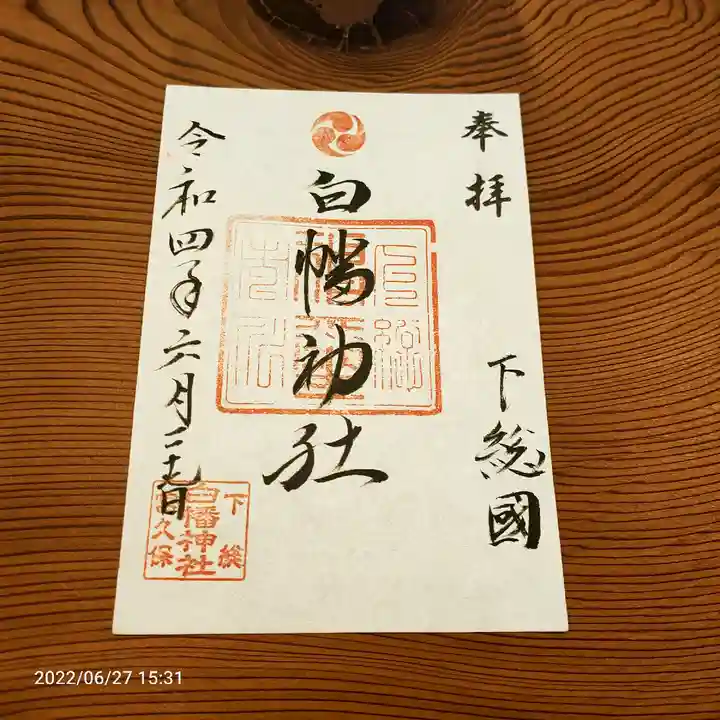 奉拝
下総國
白幡神社
令和四年六月二十七日
下総
白幡神社
久保
2022/06/27 15:31